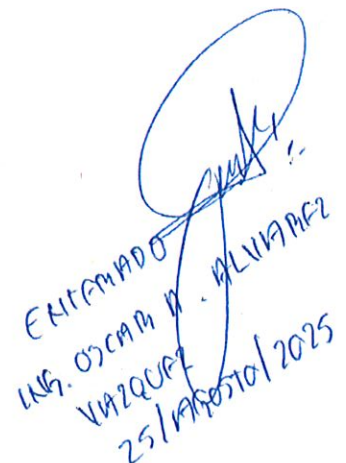 ENTERADO
ING. OSCAR A. ALVAREZ
VAZQUEZ
25/AGOSTO/2025